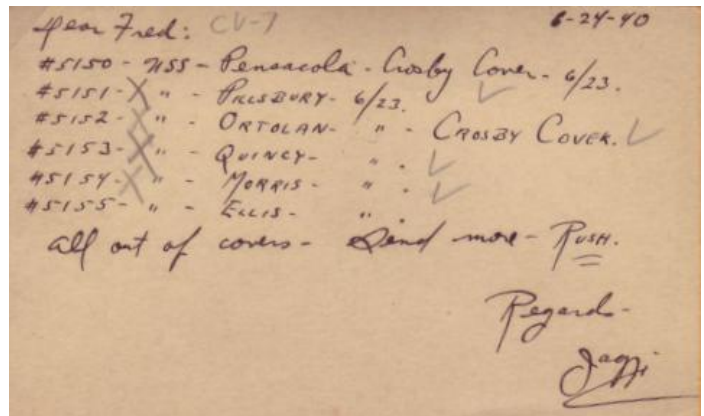 Dear Fred: CV-7 6-24-40
#5150 - USS - Pensacola - Crosby Cover - 6/23.
#5151 - X " - PILLSBURY - 6/23. ✓
#5152 - X " - ORTOLAN - " - CROSBY COVER. ✓
#5153 - X " - QUINCY - " . ✓
#5154 - X " - MORRIS - " . ✓
#5155 - " - ELLIS - "
all out of covers - Send more - RUSH.
Regards -